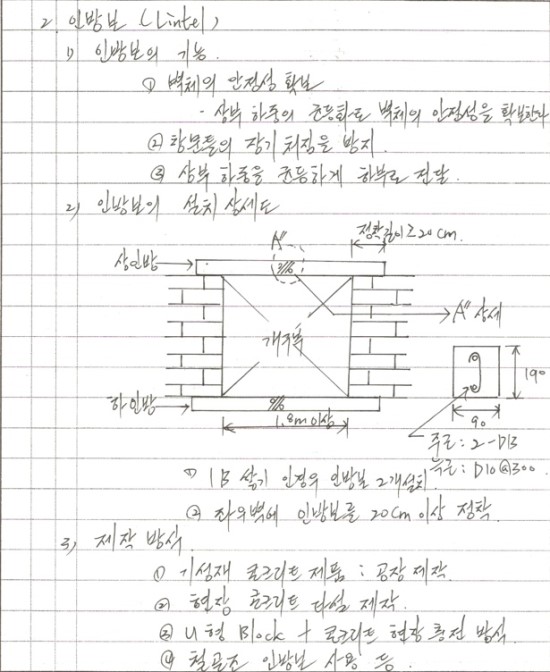 2. 인방보 (Lintel)
1) 인방보의 기능.
① 벽체의 안전성 확보
- 상부 하중의 균등화로 벽체의 안전성을 확보한다
② 창문틀의 장기 처짐을 방지.
③ 상부 하중을 균등하게 하부로 전달.
2) 인방보의 설치 상세도
"A" 정착길이≥20cm.
상인방
개구부 "A" 상세
하인방 190
1.8m이상 90
주근: 2-D13
늑근: D10@300.
① 1B 쌓기 인경우 인방보 2개설치.
② 좌우벽에 인방보를 20cm이상 정착.
3) 제작 방식.
① 기성재 콘크리트 제품 : 공장 제작.
② 현장 콘크리트 타설 제작.
③ U형 Block + 콘크리트 현장 충전 방식
④ 철골조 인방보 사용 등.